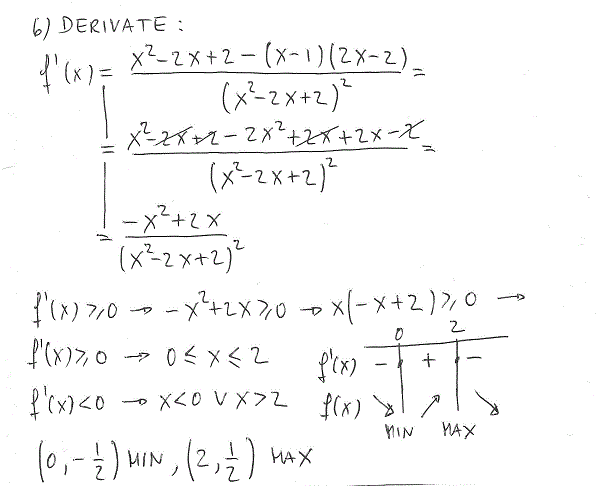 6) DERIVATE :
f'(x) = (x²-2x+2-(x-1)(2x-2))/(x²-2x+2)² =
= (x²-2x+2-2x²+2x+2x-2)/(x²-2x+2)² =
= (-x²+2x)/(x²-2x+2)²
f'(x) ≥ 0 → -x²+2x ≥ 0 → x(-x+2) ≥ 0 →
0 2
f'(x) ≥ 0 → 0 ≤ x ≤ 2 f'(x) - + -
f'(x) < 0 → x<0 ∨ x>2 f(x) ↘ ↗ ↘
MIN MAX
(0, -1/2) MIN, (2, 1/2) MAX